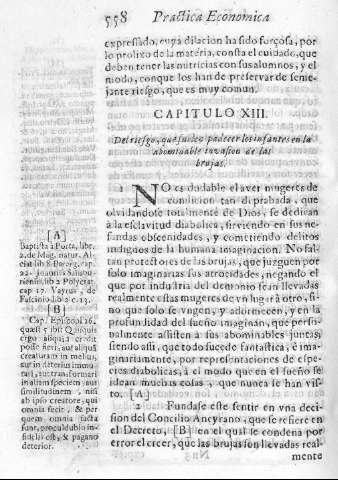 558 Practica Economica
expressado, cuya dilacion ha sido forçosa, por
lo prolixo de la materia, consta el cuidado, que
deben tener las nutricias con sus alumnos, y el
modo, con que los han de preservar de seme-
jante riesgo, que es muy comun.
CAPITULO XIII.
Del riesgo, que suelen padecer los infantes en la
abominable invasion de las
brujas.
1 NO es dudable el aver mugeres de
condicion tan diprabada, que
olvidandose totalmente de Dios, se dedican
à la esclavitud diabolica, sirviendo en sus ne-
fandas obscenidades, y cometiendo delitos
indignos de la humana imaginacion. No fal-
tan protectores de las brujas, que juzguen por
solo imaginarias sus atrocidades, negando el
que por industria del demonio sean llevadas
realmente estas mugeres de vn lugar à otro, si-
no que solo se vngen, y adormecen, y en la
profundidad del sueño imaginan, que persi-
nalmente assisten à sus abominables juntas,
siendo assi, que todo sucede fantastica, è ima-
ginariamente, por representaciones de espe-
cies diabolicas, à el modo que en el sueño se
idean muchas cosas, que nunca se han vis-
to. [A]
2 Fundase este sentir en vna deci-
sion del Concilio Ancyrano, que se refiere en
el Decreto, [B] en el qual se condena por
error el creer, que las brujas son llevadas real-
mente
[A]
Baptista à Porta, libr.
2. de Mag. natur. Al-
22.
riensis, lib. 2. Polycrat.
cap. 17. de
Fascino lib. 2. c. 13.
[B]
Cap. Episcopi 26.
quæst. 5. ibi: Quisquis
ergo aliquid credit
posse fieri, aut aliquã
creaturam in melius,
aut in deterius immu-
tari, aut transformari
in aliam speciem, aut
similitudinem, nisi
ab ipso creatore, qui
omnia fecit, & per
quem omnia facta
sunt, proculdubio in-
fidelis est, & pagano
deterior.